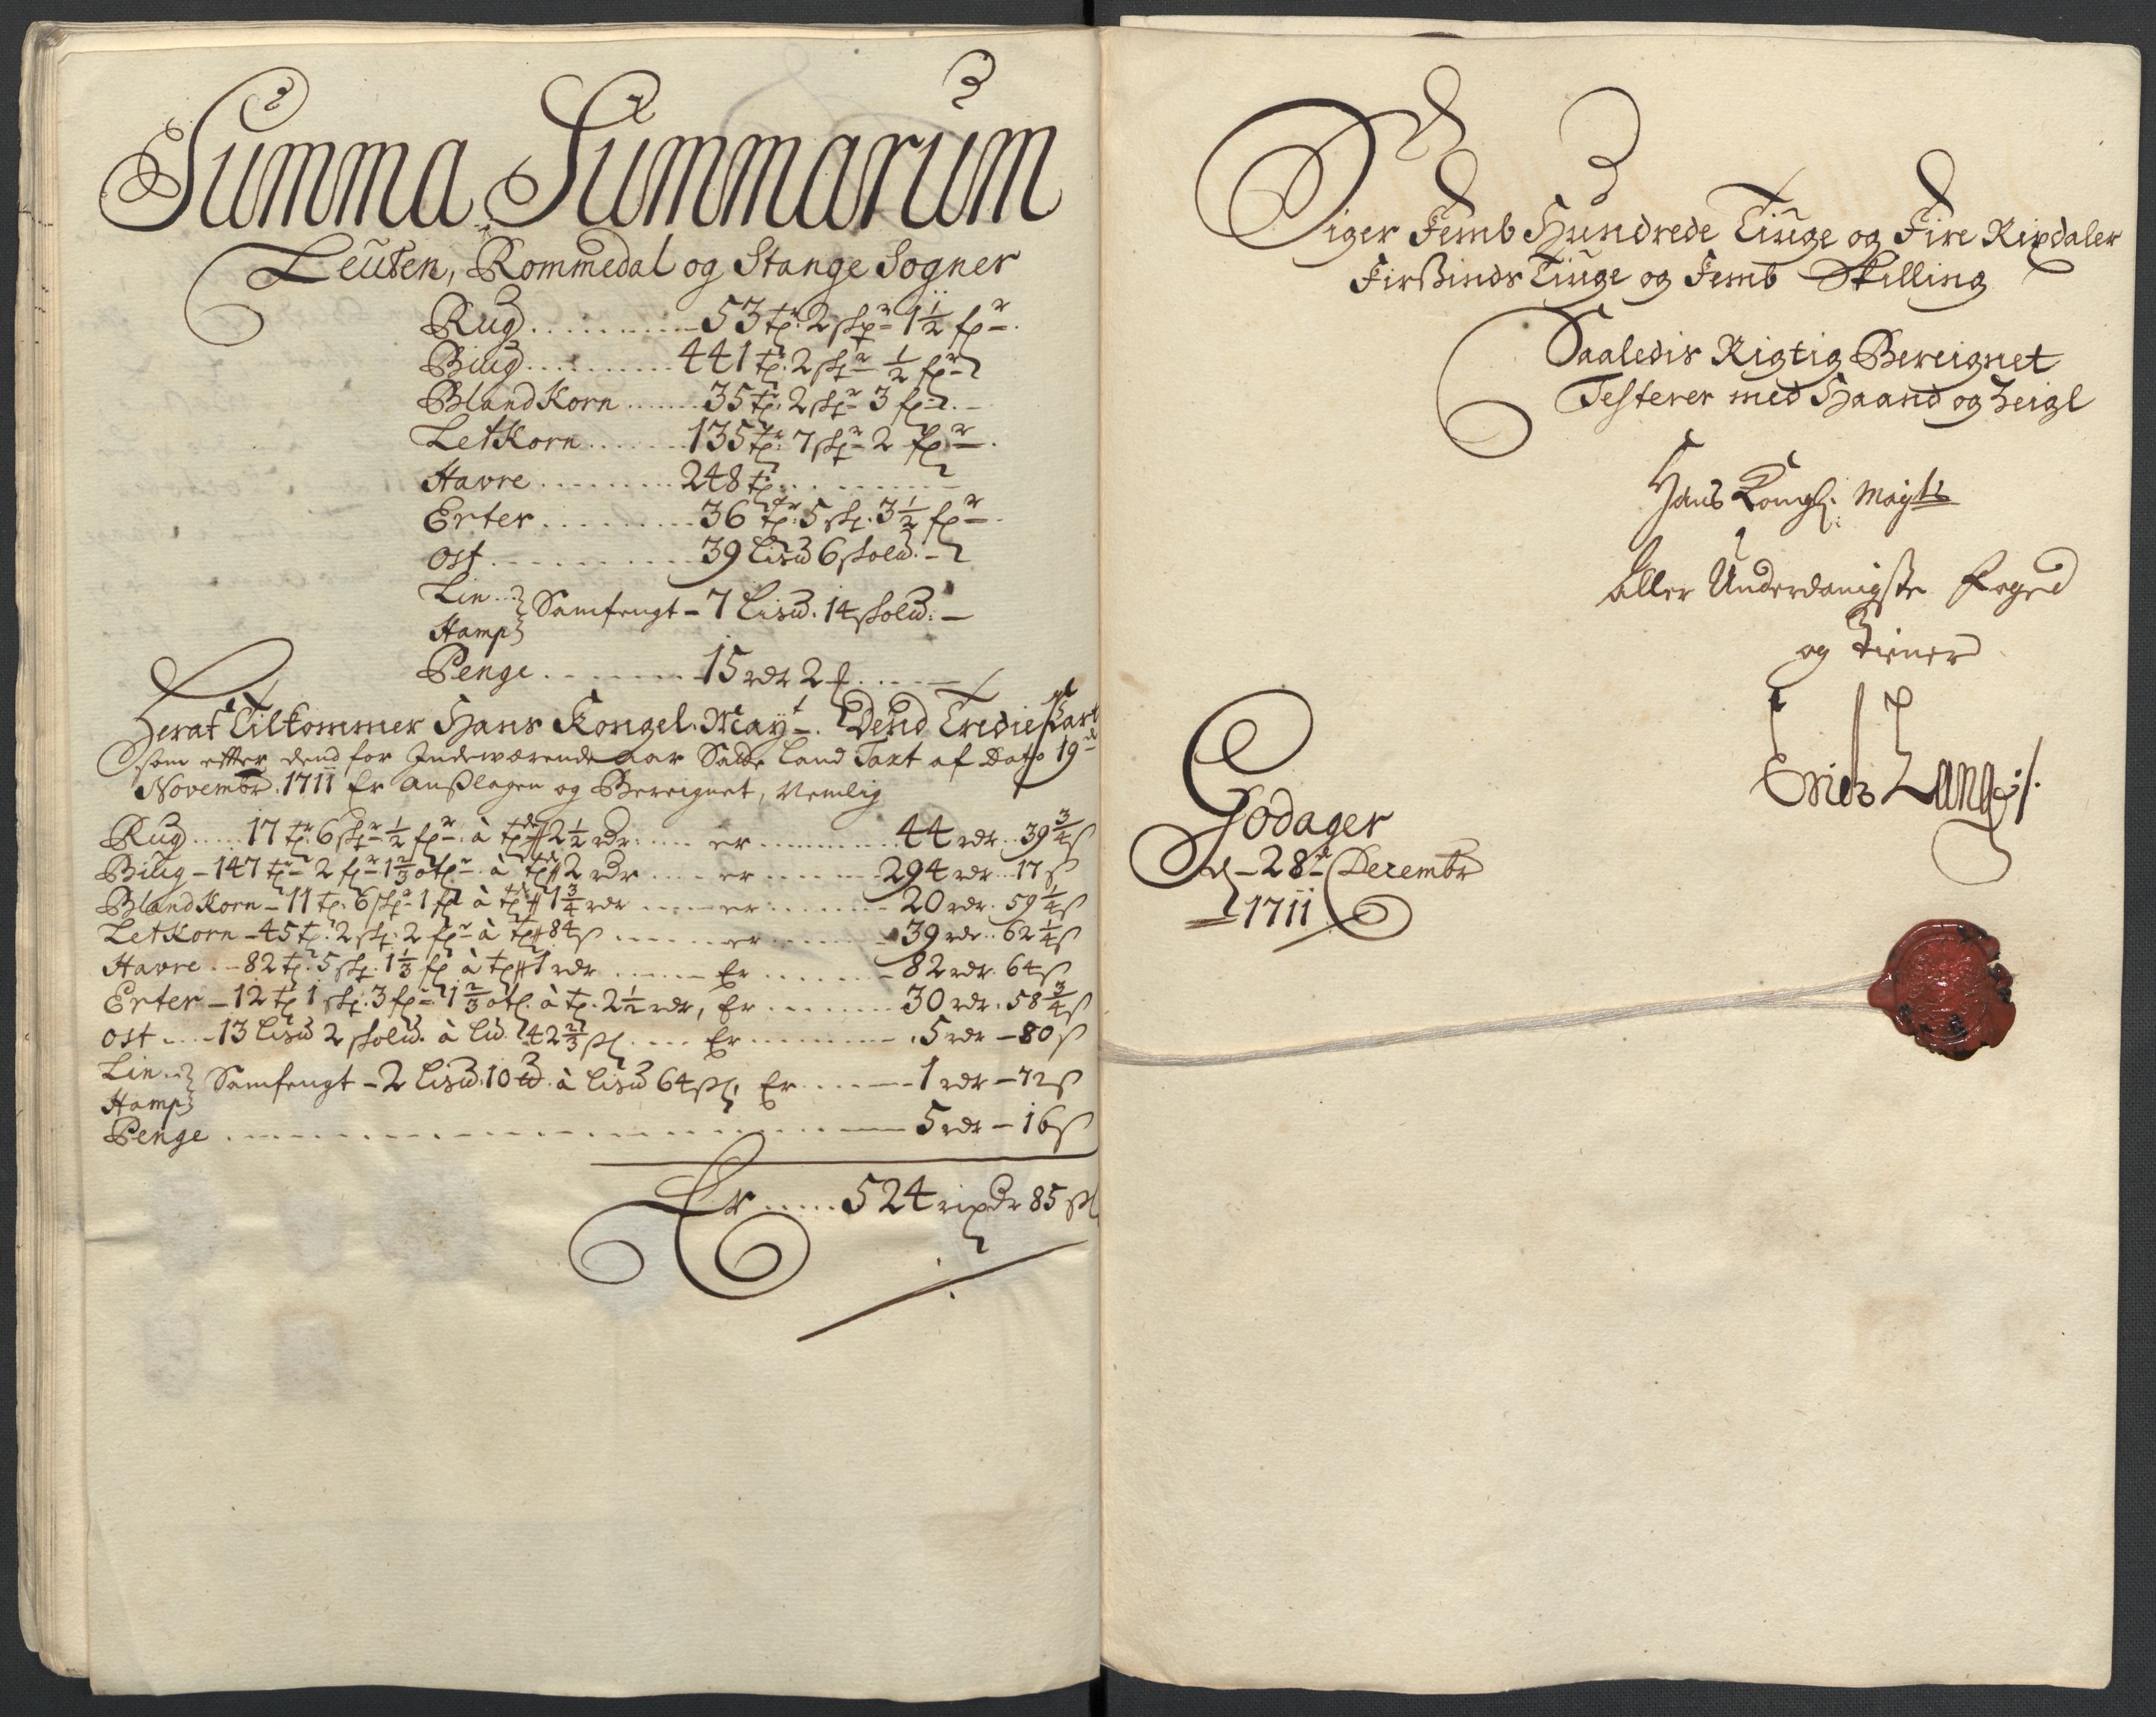 Summa Summarum
Leuten, Rommedal og Stange Sogner
Rug . . . . . 53 tr 2 skpr 1½ fpr
Biug . . . . . 441 tr 2 skpr ½ fpr
BlandKorn . . . . . 35 tr 2 skpr 3 fpr
LetKorn . . . . . 135 tr 7 skpr 2 fpr
Havre . . . . . 248 tr
Erter . . . . . 36 tr 5 skp 3½ fpr
Ost . . . . . 39 Lisƚƚ 6 skolƚƚ
Lin
Hamp } Samfengt – 7 Lisƚƚ. 14 skolƚƚ: –
Penge . . . . . 15 rdr 2 s
Heraf Tilkommer Hans Kongel. Mayt. Dend Tredie Part
som effter dend for Indewærende aar Satte Land Taxt af Dato 19de
Novembr. 1711 Er Anslagen og Bereignet, Nemlig
Rug . . . 17 tr 6 skpr ½ fpr à tde 2½ rdr . . . er . . . 44 rdr. 39¾ s
Biug – 147 tr 2 fpr 1⅔ otr à td 2 rdr . . . er . . . 294 rdr. 17 s
BlandKorn – 11 t. 6 skpr 1 f à td 1¾ rdr . . . er . . . 20 rdr. 59¼ s
LetKorn – 45 t. 2 skp. 2 fpr à td 84 s . . . er . . . 39 rdr. 62¼ s
Havre – 82 t. 5 skp. 1⅓ f à td 1 rdr . . . Er . . . 82 rdr. 64 s
Erter – 12 t 1 skp. 3 fp 1⅔ ot. à t. 2½ rdr, Er . . . 30 rdr. 58¾ s
Ost . . . 13 Lisƚƚ 2 skolƚƚ. à Lƚƚ. 42⅔ s . . . Er . . . 5 rdr – 80 s
Lin
Hamp } Samfengt – 2 Lisƚƚ. 10 ƚƚ. à Lisƚƚ 64 s, Er . . . 1 rdr – 72 s
Penge . . . . . 5 rdr – 16 s
Er . . . . . 524 rixdr 85 s
Siger Femb Hundrede Tiuge og Fire Rixdaler
Firsinds Tiuge og Femb Skilling
Saaledis Rigtig Bereignet
Testerer med Haand og Zeigl
Hans Kongl: Mayts
Aller Underdanigste Foged
og Tiener
Erich Lang
Godager
d – 28de Decembr
1711